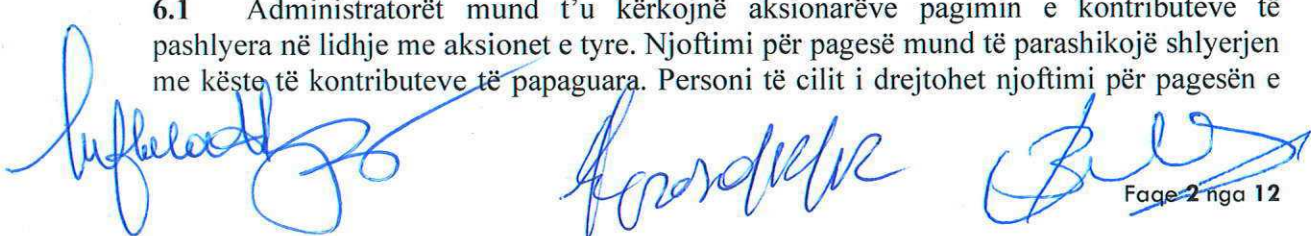 6.1 Administratorët mund t'u kërkojnë aksionarëve pagimin e kontributeve të
pashlyera në lidhje me aksionet e tyre. Njoftimi për pagesë mund të parashikojë shlyerjen
me këste të kontributeve të papaguara. Personi të cilit i drejtohet njoftimi për pagesën e
Faqe 2 nga 12